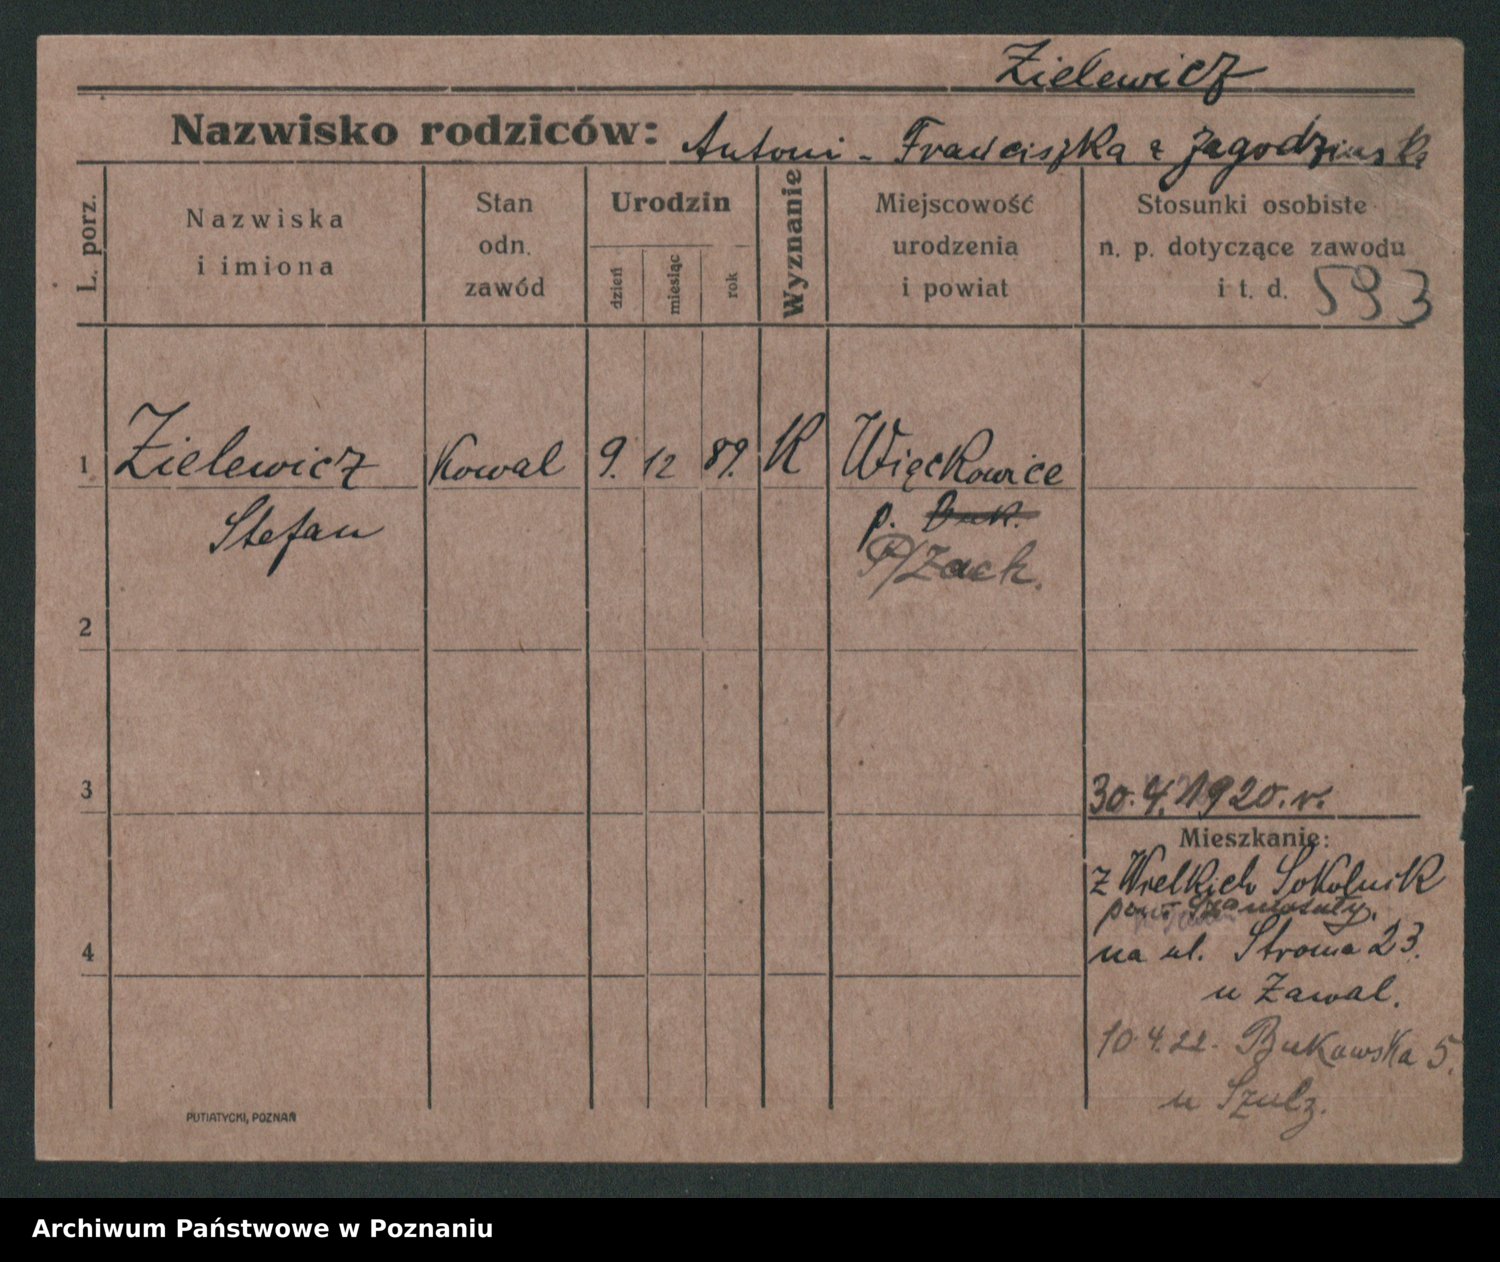 Zielewicz
Nazwisko rodziców: Antoni - Franciszka z Jagodzinska
L. porz.
Nazwiska
i imiona
Stan
odn.
zawód
Urodzin
dzień
miesiąc
rok
Wyznanie
Miejscowość
urodzenia
i powiat
Stosunki osobiste
n. p. dotyczące zawodu
i t. d. 593
1 Zielewicz Kowal 9. 12 89. K Więckowice
Stefan p. Buk.
P/Zach.
2
3 30.4.1920.r.
Mieszkanie:
z Wielkich Sokolnik
pow. Szamotuły.
4 na ul. Stroma 23.
u Zawal.
10.4.22. Bukowska 5.
u Szulz.
PUTIATYCKI, POZNAŃ
Archiwum Państwowe w Poznaniu